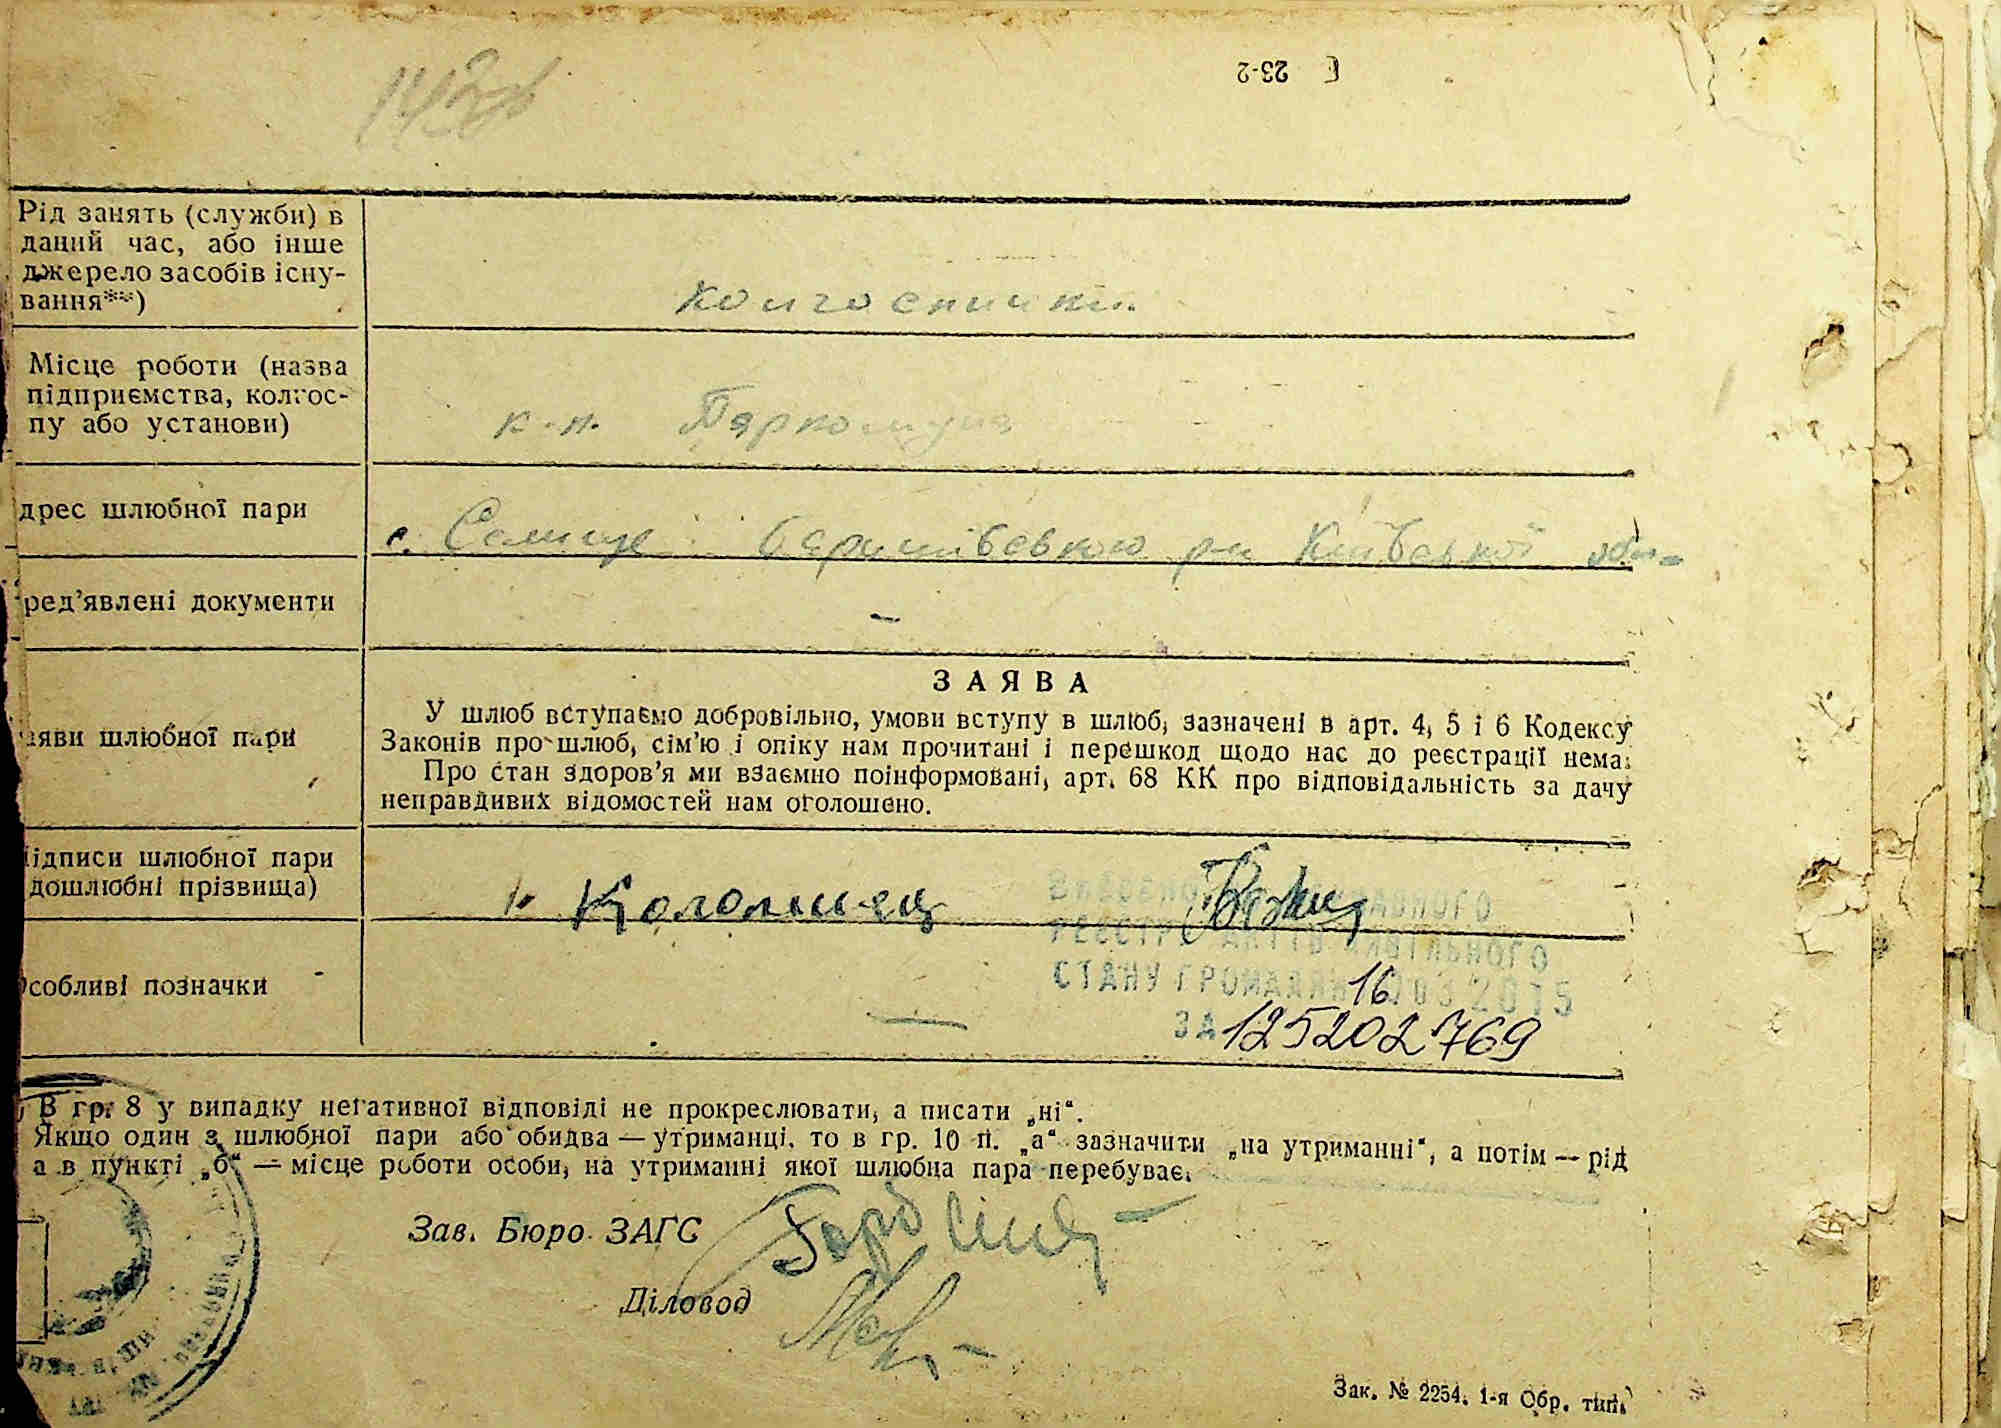 23-2
Рід занять (служби) в
даний час, або інше
джерело засобів існу-
вання**)
колгоспники
Місце роботи (назва
підприємства, колгос-
пу або установи)
к-п. Паркомуна
дрес шлюбної пари
с. Селище Баришівського р-н Київської обл.
ред’явлені документи
—
ЗАЯВА
аяви шлюбної пари
У шлюб вступаємо добровільно, умови вступу в шлюб, зазначені в арт. 4, 5 і 6 Кодексу
Законів про шлюб, сім’ю і опіку нам прочитані і перешкод щодо нас до реєстрації нема.
Про стан здоров’я ми взаємно поінформовані, арт. 68 КК про відповідальність за дачу
неправдивих відомостей нам оголошено.
ідписи шлюбної пари
дошлюбні прізвища)
Коломиец
собливі позначки
—
ДЕРЖАВНОГО
РЕЄСТРУ АКТІВ ЦИВІЛЬНОГО
СТАНУ ГРОМАДЯН 16 03 2015
ЗА 125202769
В гр. 8 у випадку негативної відповіді не прокреслювати, а писати „ні“.
Якщо один з шлюбної пари або обидва — утриманці, то в гр. 10 п. „а“ зазначити „на утриманні“, а потім — рід
а в пункті „б“ — місце роботи особи, на утриманні якої шлюбна пара перебуває.
Зав. Бюро ЗАГС
Діловод
Зак. № 2254. 1-я Обр. тип.